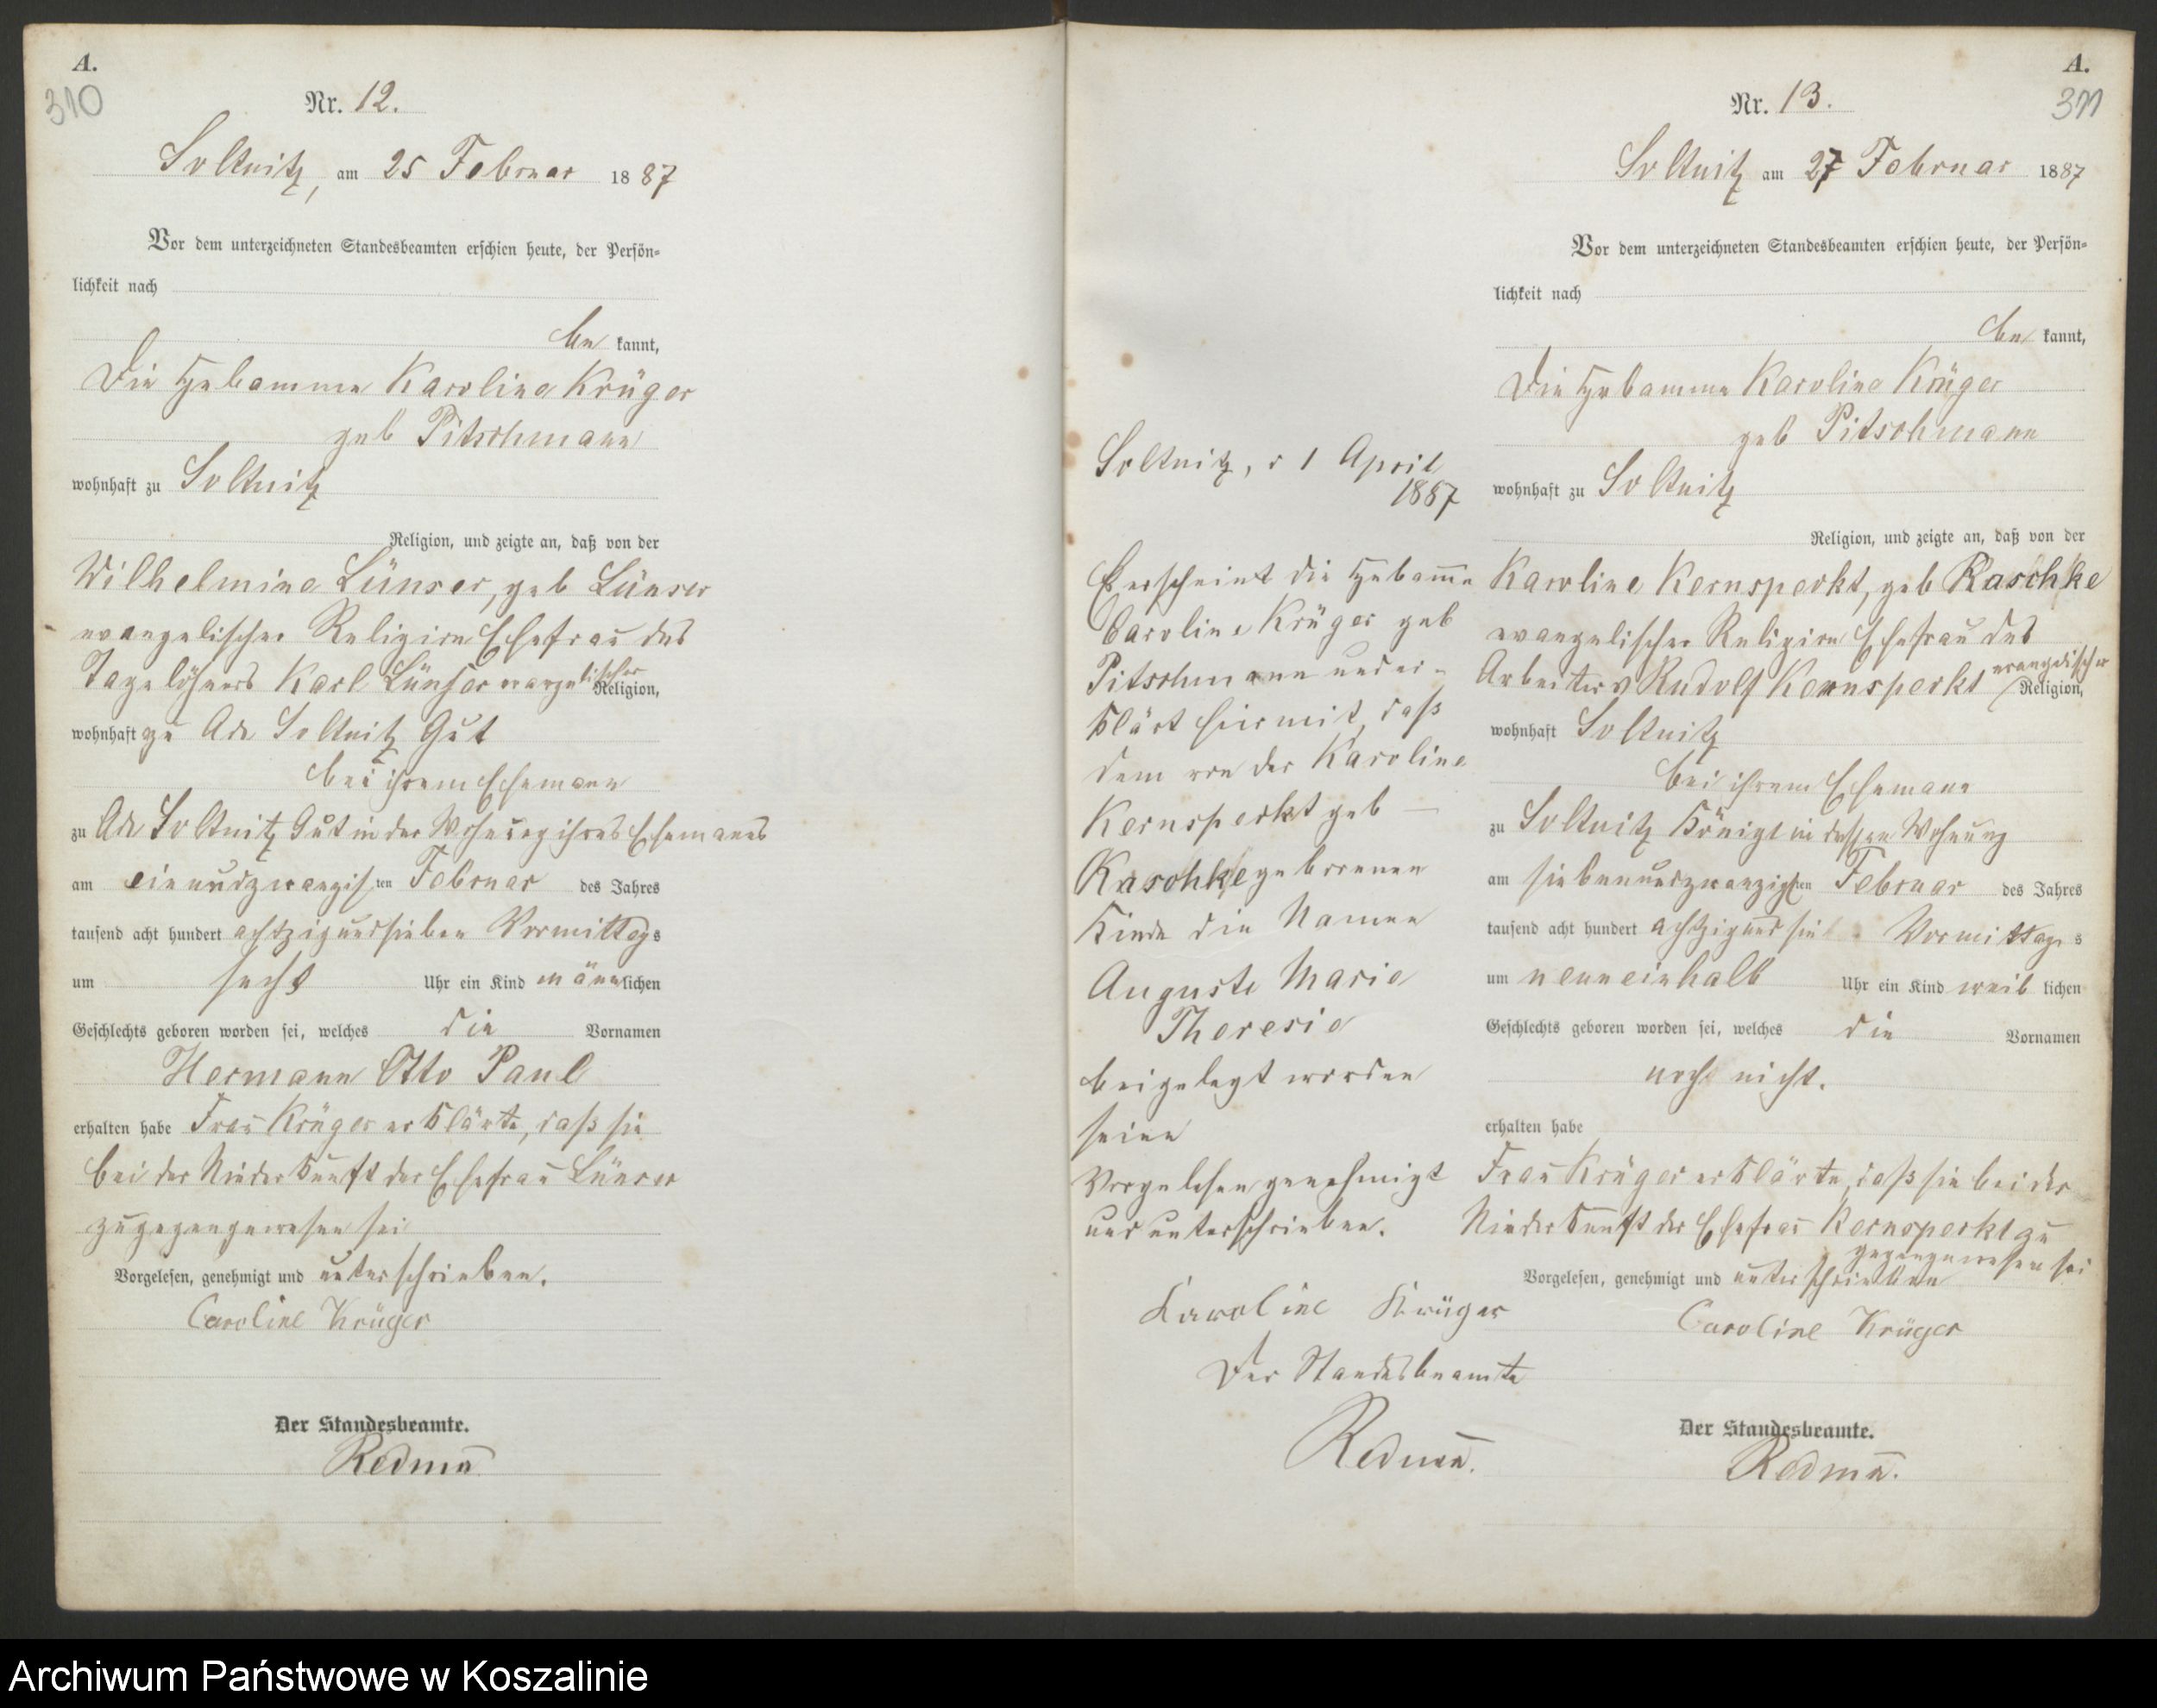 A.
310
Nr. 12.
Soltnitz, am 25 Februar 1887
Vor dem unterzeichneten Standesbeamten erschien heute, der Persön-
lichkeit nach
be kannt,
Die Hebamme Karoline Krüger
geb Pitschmann
wohnhaft zu Soltnitz
Religion, und zeigte an, daß von der
Wilhelmine Lünser, geb Lünser
evangelischer Religion Ehefrau des
Tagelöhners Karl Lünser evangelischer Religion,
wohnhaft zu Adl Soltnitz Gut
bei ihrem Ehemann
zu Adl Soltnitz Gut in der Wohnung ihres Ehemannes
am einundzwanzigsten Februar des Jahres
tausend acht hundert achtzigundsieben Vormittags
um sechs Uhr ein Kind männlichen
Geschlechts geboren worden sei, welches die Vornamen
Hermann Otto Paul
erhalten habe Frau Krüger erklärte, daß sie
bei der Niederkunft der Ehefrau Lünser
zugegengewesen sei
Vorgelesen, genehmigt und unterschrieben.
Caroline Krüger
Der Standesbeamte.
Redmn̄
Soltnitz, d 1 April
1887
Es erscheint die Hebam̄e
Caroline Krüger geb
Pitschmann und er-
klärt hiermit, daß
dem von der Karoline
Kernsperkt geb —
Raschke geborenen
Kinde die Namen
Auguste Marie
Theresie
beigelegt worden
seien
Vorgelesen genehmigt
und unterschrieben.
Karoline Krüger
Der Standesbeamte
Redman̄.
A.
311
Nr. 13.
Soltnitz am 27 Februar 1887
Vor dem unterzeichneten Standesbeamten erschien heute, der Persön-
lichkeit nach
be kannt,
Die Hebamme Karoline Krüger
geb Pitschmann
wohnhaft zu Soltnitz
Religion, und zeigte an, daß von der
Karoline Kernsperkt, geb Raschke
evangelischer Religion Ehefrau des
Arbeiters Rudolf Kernsperkt evangelischer Religion,
wohnhaft Soltnitz
bei ihrem Ehemann
zu Soltnitz Königl in dessen Wohnung
am siebenundzwanzigsten Februar des Jahres
tausend acht hundert achtzigundsieben Vormittags
um neuneinhalb Uhr ein Kind weiblichen
Geschlechts geboren worden sei, welches die Vornamen
noch nicht.
erhalten habe
Frau Krüger erklärte, daß sie bei der
Niederkunft der Ehefrau Kernsperkt zu
gegengewesen sei
Vorgelesen, genehmigt und unterschrieben
Caroline Krüger
Der Standesbeamte.
Redmn̄.
Archiwum Państwowe w Koszalinie